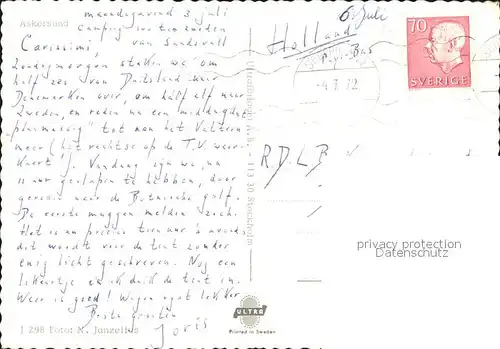 Askersund
maandagavond 3 juli
camping ten zuiden
van Sundsvall
Carissimi,
Zondagmorgen staken we om
half zes van Duitsland naar
Denemarken over, om half elf naar
Zweden, en reden na een middagdut
tot aan het Vättern
meer (het rechtse op de T.V. weer
kaart). Vandaag zijn we, na
11 uur geslapen te hebben, door
gereden naar de Botnische golf.
De eerste muggen melden zich.
Het is nu precies tien uur 's avonds,
dit wordt vier de tent zonder
enig licht geschreven. Nog een
en ik duik de tent in.
Weer is goed! Wagen ook lekker
Beste groeten
Joris
1 298 Foto: N. Janzelius
Holland
6 juli
P.v. Bus
R.D.L.B
-4.7.72
70
SVERIGE
Ultraförlaget A.B. - 113 30 Stockholm
ULTRA
Printed in Sweden
privacy protection
Datenschutz